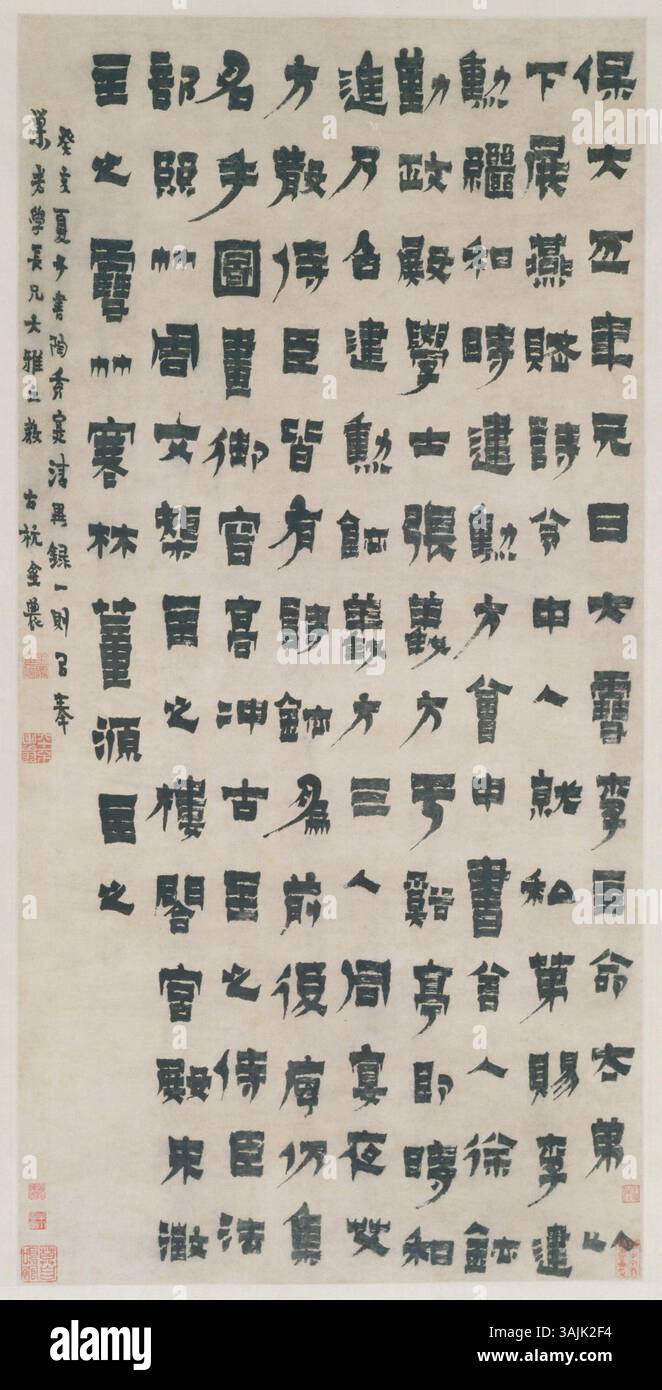 保大五年元日大雪李主命太弟以
下展燕賦詩令中人就私第賜李建
勳繼和時建勳方會中書舍人徐鉉
勤政殿學士張義方于谿亭即時和
進乃召建勳鉉義方三人同宴夜艾
方散侍臣皆有詩鉉為前後序仍集
名手圖畫御容高沖古主之侍臣法
部照竹周文矩主之樓閣宮殿朱澂
主之雪竹寒林董源主之
癸亥夏書陶秀實清異錄一則以奉
巢老學長兄大雅之教 古杭金農
alamy
Image ID: 3AJK2F4
www.alamy.com